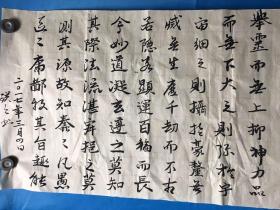 舉靈而無上抑神力
而無下大之則弥於宇
宙細之則攝於毫釐無
滅無生歷千劫而不古
若隱若顯運百福而長
今妙道凝玄遵之莫知
其際法流湛寂挹之莫
測其源故知蠢〻凡愚
區〻庸鄙投其旨趣能
二〇一七年三月四日